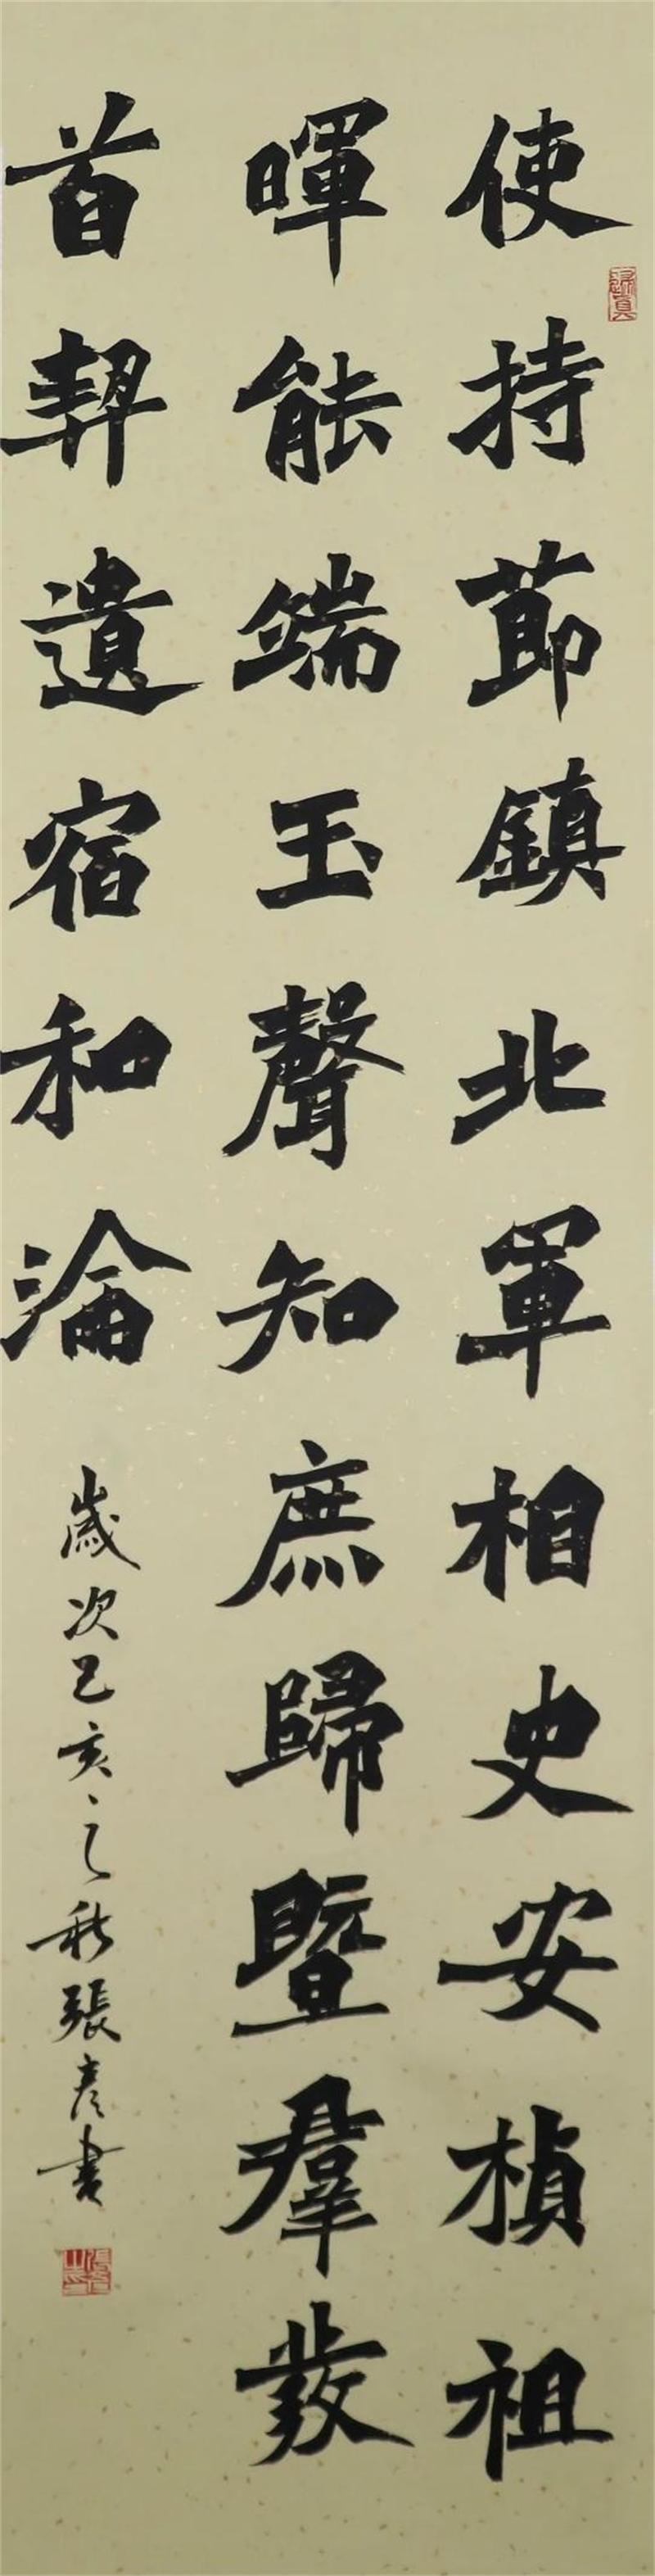 使持節鎮北軍相史安楨祖
暉能端玉聲知庶歸暨羣發
首契遺宿和淪
歲次己亥之秋張彥書